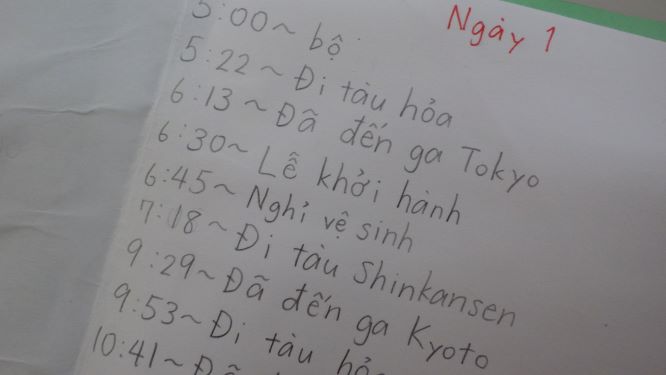 Ngày 1
5:00~ bộ
5:22~ Đi tàu hỏa
6:13~ Đã đến ga Tokyo
6:30~ Lễ khởi hành
6:45~ Nghỉ vệ sinh
7:18~ Đi tàu Shinkansen
9:29~ Đã đến ga Kyoto
9:53~ Đi tàu
10:41~ Đã